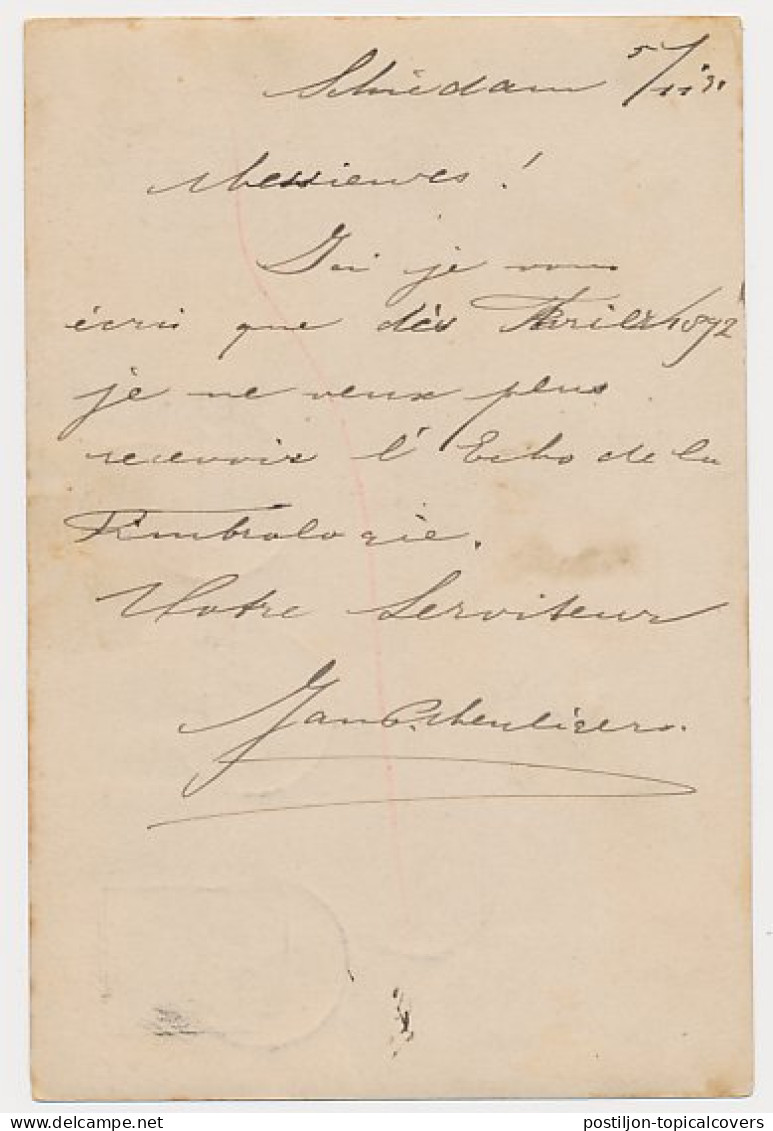 Schiedam 5/11 91
Messieurs!
J'ai je vous
écris que dès Avril 1892
je ne veux plus
recevoir l'Echo de la
Timbrologie.
Votre Serviteur
Jan
postiljon-topicalcovers